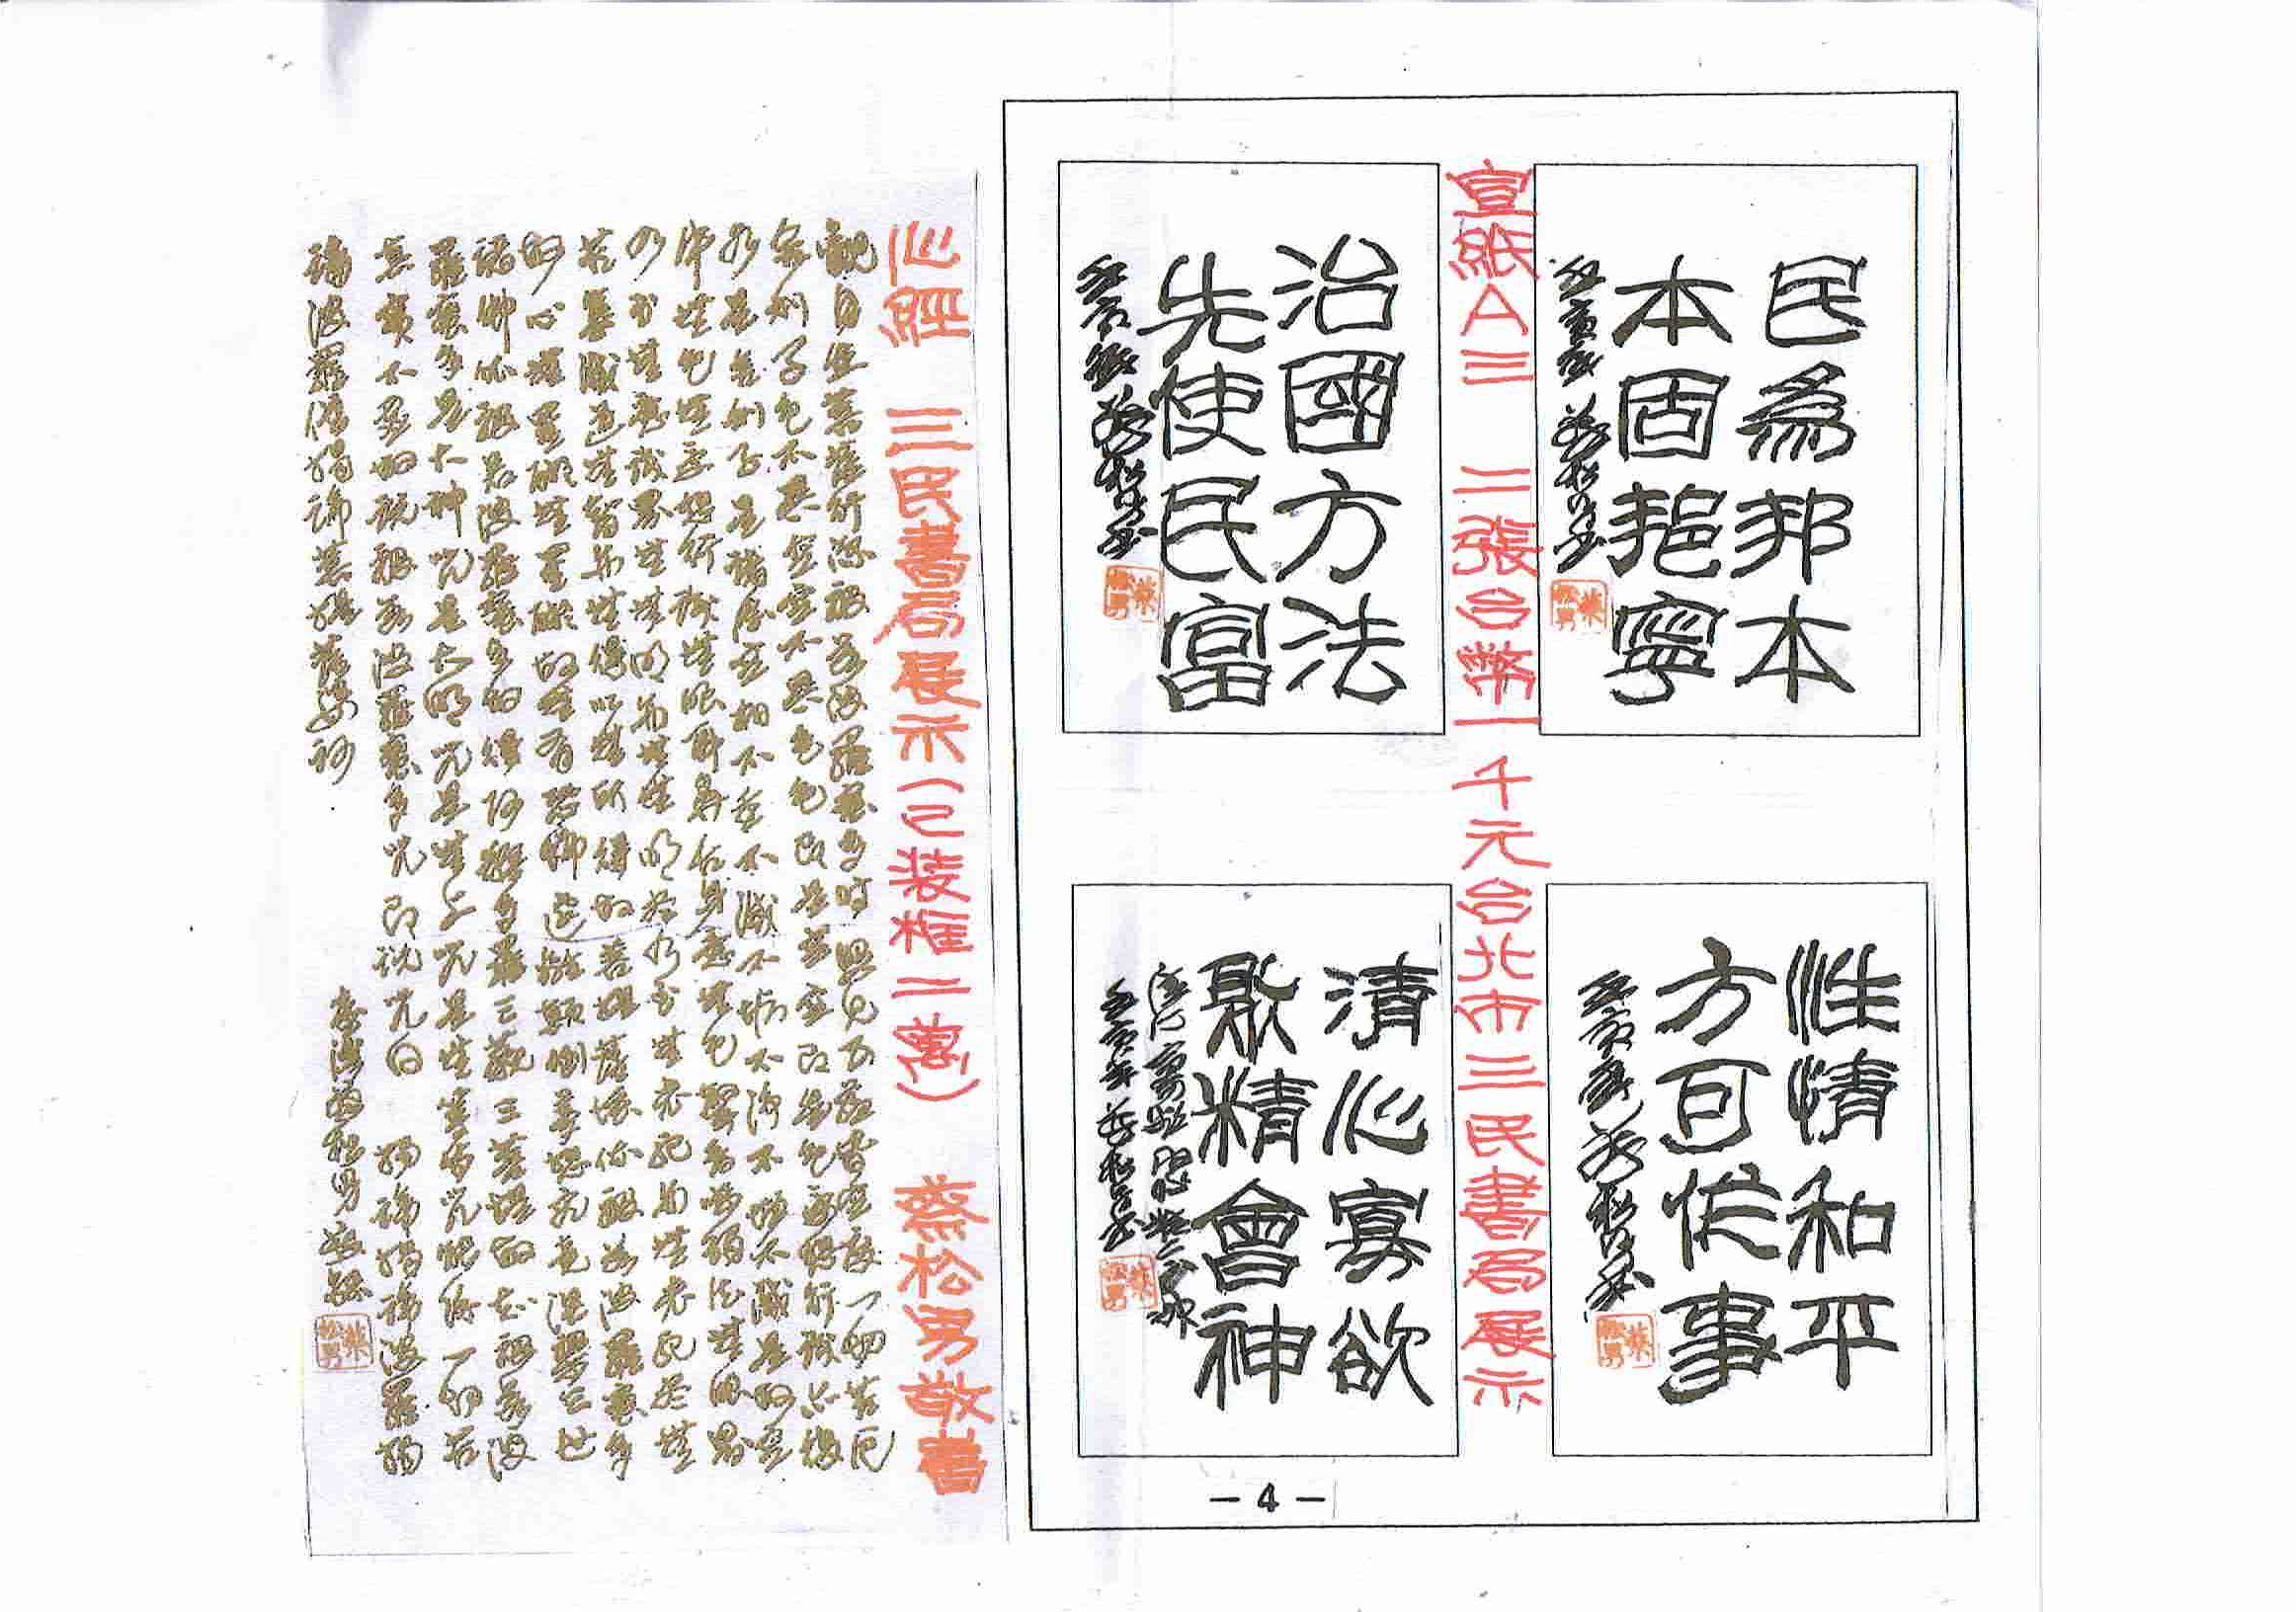 民為邦本
本固邦寧
宣紙A三 二張台幣一千元台北市三民書局展示
治國方法
先使民富
性情和平
方可作事
清心寡欲
聚精會神
-4-
心經 三民書局展示(已裝框二萬) 蔡松男敬書
觀自在菩薩行深般若波羅蜜多時照見五蘊皆空度一切苦厄
舍利子色不異空空不異色色即是空空即是色受想行識亦復
如是舍利子是諸法空相不生不滅不垢不淨不增不減是故空
中無色無受想行識無眼耳鼻舌身意無色聲香味觸法無眼界
乃至無意識界無無明亦無無明盡乃至無老死亦無老死盡無
苦集滅道無智亦無得以無所得故菩提薩埵依般若波羅蜜多
故心罣礙無罣礙故無有恐怖遠離顛倒夢想究竟涅槃三世
諸佛依般若波羅蜜多故得阿耨多羅三藐三菩提故知般若波
羅蜜多是大神咒是大明咒是無上咒是無等等咒能除一切苦
真實不虛故說般若波羅蜜多咒即說咒曰 揭諦揭諦波羅揭
諦波羅僧揭諦菩提薩婆訶
蔡松男